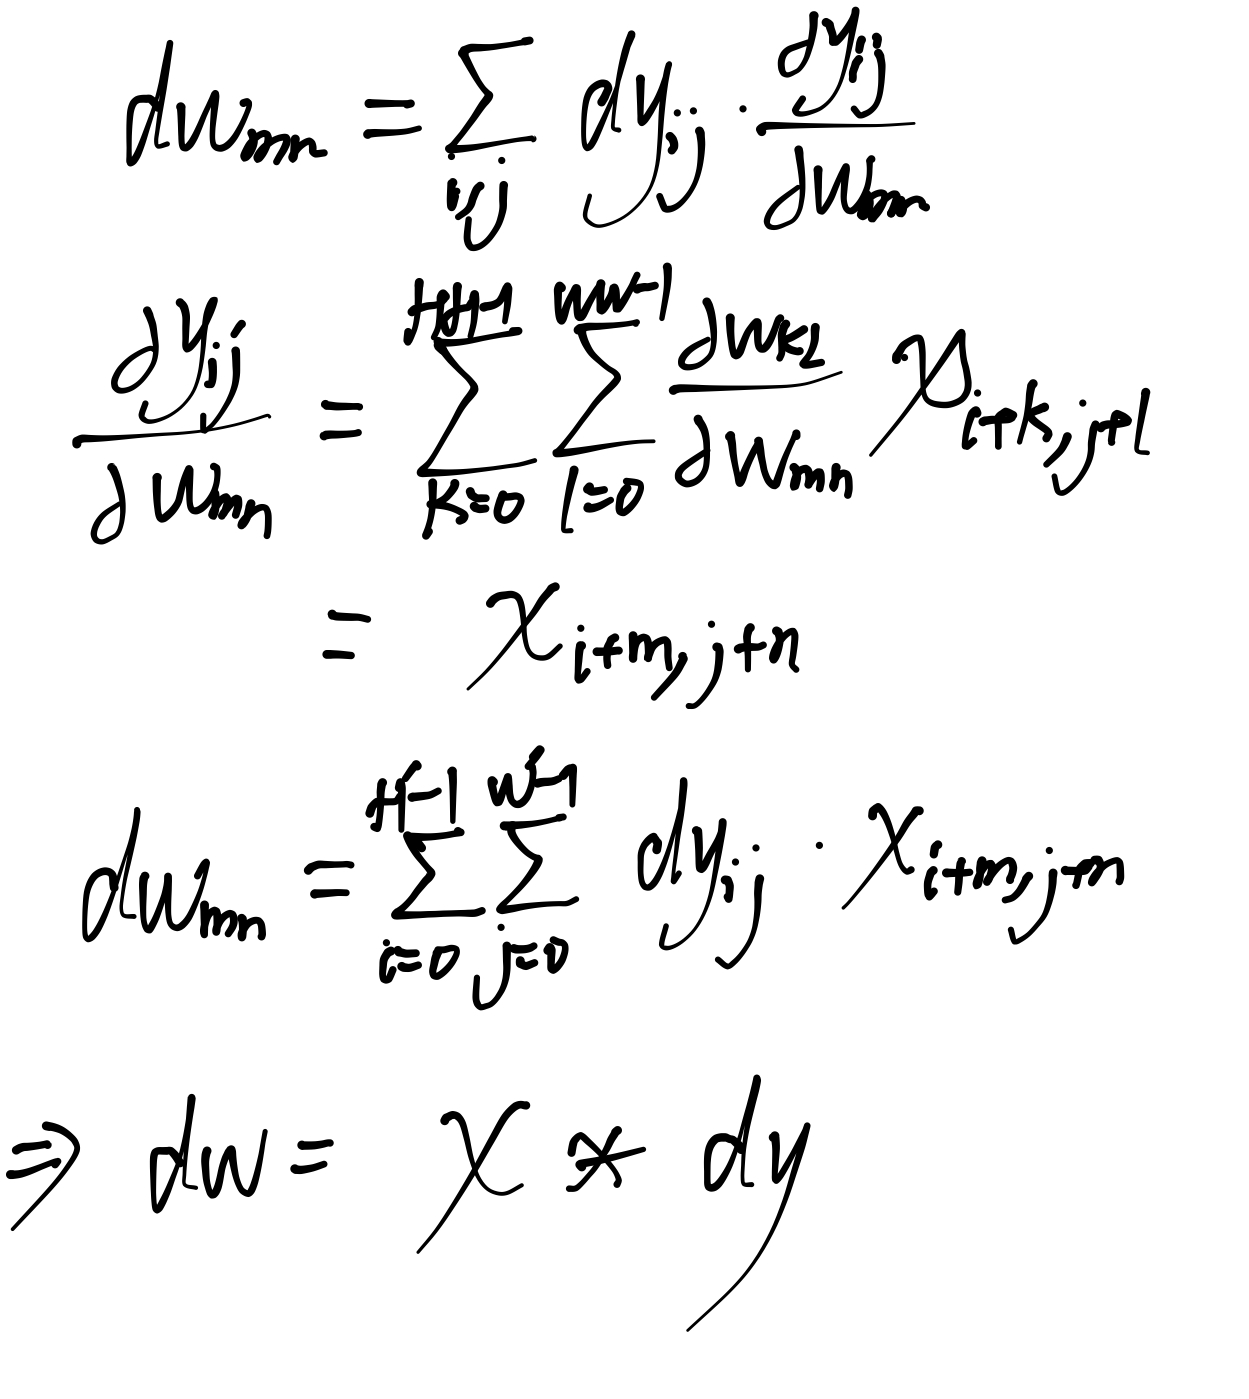 dw_{mn} = \sum_{i,j} dy_{ij} \cdot \frac{\partial y_{ij}}{\partial w_{mn}}
\frac{\partial y_{ij}}{\partial w_{mn}} = \sum_{k=0}^{HH-1} \sum_{l=0}^{WW-1} \frac{\partial w_{kl}}{\partial w_{mn}} x_{i+k,j+l}
= x_{i+m,j+n}
dw_{mn} = \sum_{i=0}^{H'-1} \sum_{j=0}^{W'-1} dy_{ij} \cdot x_{i+m,j+n}
\Rightarrow dw = x * dy